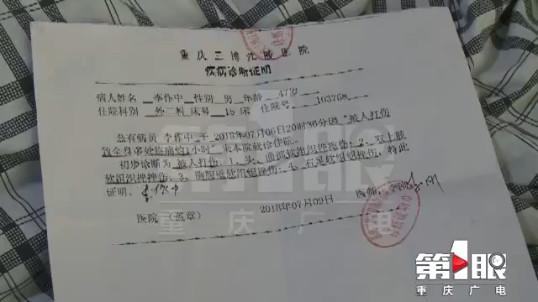 重庆三博长安医院
疾病诊断证明
病人姓名 李作中 性别 男 年龄 47岁
住院科别 外 科 床号 18 床 住院号 103758
兹有病员 李作中 于 2018年07月06日20时36分因"被人打伤
致全身多处疼痛约1小时" 来本院就诊住院。
初步诊断为 被人打伤：1、头、面部软组织挫伤；2、双上肢
软组织挫擦伤；3、胸腹壁软组织挫伤；4、右足软组织挫伤。特此
证明。
医院 （盖章） 2018年07月09日 医师：
重庆广电
第1眼
重庆广电